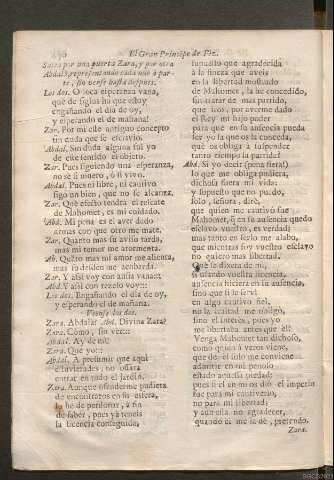 El Gran Principe de Fez.
Salen por una puerta Zara, y por otra
Abdalà, representando cada uno à par-
te, sin verse hasta despues.
Los dos. O loca esperanza vana,
què de siglos ha que estoy
engañando el dia de oy,
y esperando el de mañana!
Zar. Por mi este antiguo concepto
sin duda que se escrivio,
Abdal. Sin duda alguna fui yo
de esse sentido el objeto.
Zar. Pues siguiendo una esperanza,
no sè si muero, ò si vivo.
Abdal. Pues ni libre, ni cautivo
sigo un bien, que no se alcanza.
Zar. Què efecto tendrà el rescate
de Mahomet, es mi cuidado.
Abd. Mi pena es el aver dado
armas con que otro me mate.
Zar. Quanto mas su aviso tarda,
mas mi temor me atormenta.
Ab. Quãto mas mi amor me alienta,
mas su desden me acobarda.
Zar. Y assi voy con ansia
Abd. Y assi con rezelo voy
Los dos. Engañando el dia de oy,
y esperando el de mañana.
Vense los dos.
Zara. Abdalà? Abd. Divina Zara?
Zara. Còmo, sin ver
Abdal. Ay de mi!
Zara. Que yo
Abdal. A presumir que aqui
estuvierades, no ossara
entrar en todo el Jardin.
Zara. Aunque ofenderme pudiera
de encontraros en su esfera,
lo he de perdonar, à fin
de saber, pues ya teneis
la licencia conseguida,
supuesto que agradecida
à la fineza que aveis
en la libertad mostrado
de Mahomet, la he concedido,
sin tratar de mas partido,
que ser, por averme dado
el Rey mi hijo poder
para que en su ausencia pueda
ser yo la que os la conceda,
què os obliga à suspender
tanto tiempo la partida?
Abd. Si yo decir (pena fiera!)
lo que me obliga pudiera,
dichosa fuera mi vida:
y supuesto que no puedo,
solo, señora, dirè,
que quien me cautivò fue
Mahomet, y en su ausencia quedo
esclavo vuestro, es verdad;
mas tanto en serlo me alabo,
que mientras soy vuestro esclavo
no quiero mas libertad.
Què se dixera de mi,
si usando vuestra licencia,
ausencia hiciera en su ausencia,
sino que si le servi
en algo cautivo fiel,
no la lealtad me obligò,
sino el interès, pues yo
me libertaba antes que èl?
Venga Mahomet tan dichoso,
como quien à veros viene,
que de el solo me conviene
admitir en mi penoso
estado aquessa piedad:
pues si èl en mi diò el imperio
fue para mi cautiverio,
no para mi libertad;
y aun esta no agradecer,
quando èl me la dè, pretendo.
Zara.